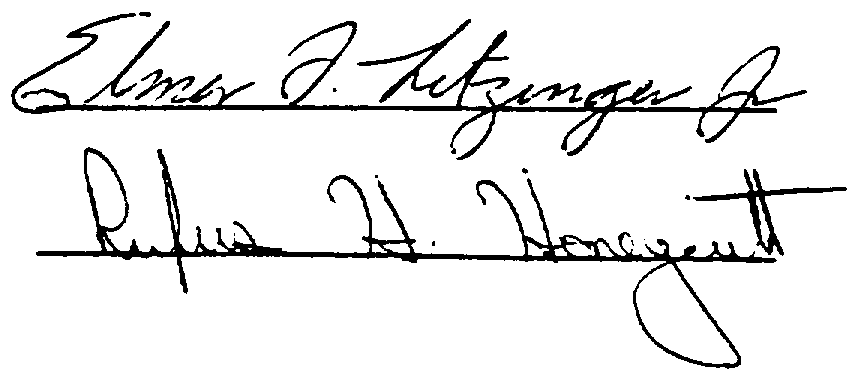 Elmer F. Litzinger Jr
Rufus H. Honeycutt